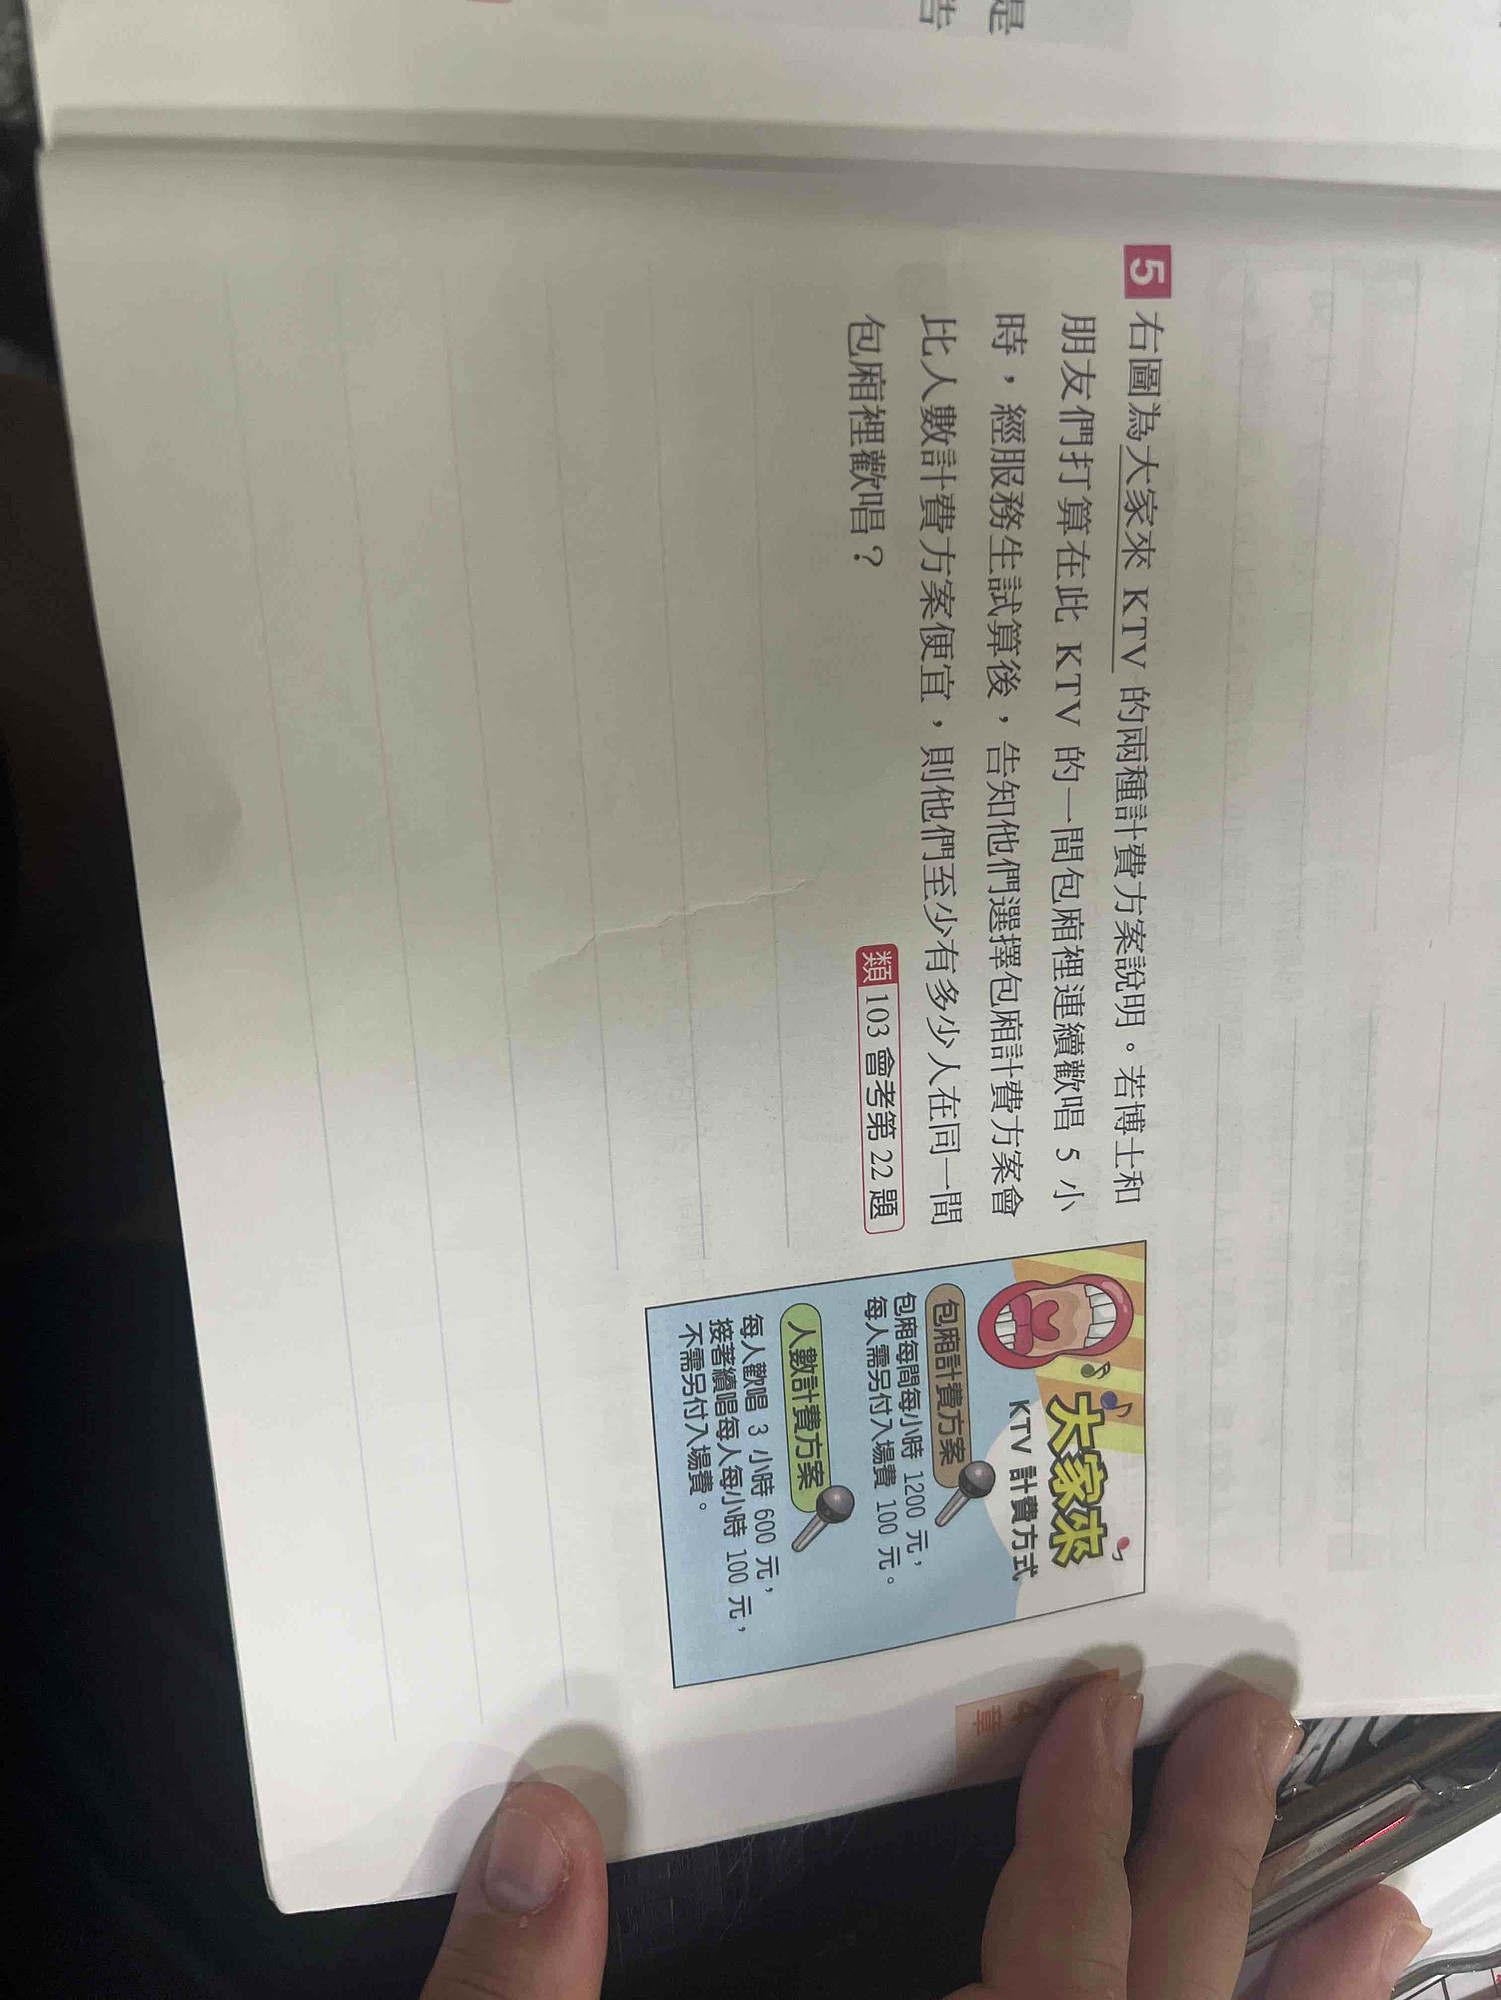 是
告
5 右圖為大家來 KTV 的兩種計費方案說明。若博士和
朋友們打算在此 KTV 的一間包廂裡連續歡唱 5 小
時，經服務生試算後，告知他們選擇包廂計費方案會
比人數計費方案便宜，則他們至少有多少人在同一間
包廂裡歡唱？
類 103 會考第 22 題
大家來
KTV 計費方式
包廂計費方案
包廂每間每小時 1200 元，
每人需另付入場費 100 元。
人數計費方案
每人歡唱 3 小時 600 元，
接著續唱每人每小時 100 元，
不需另付入場費。
4
章